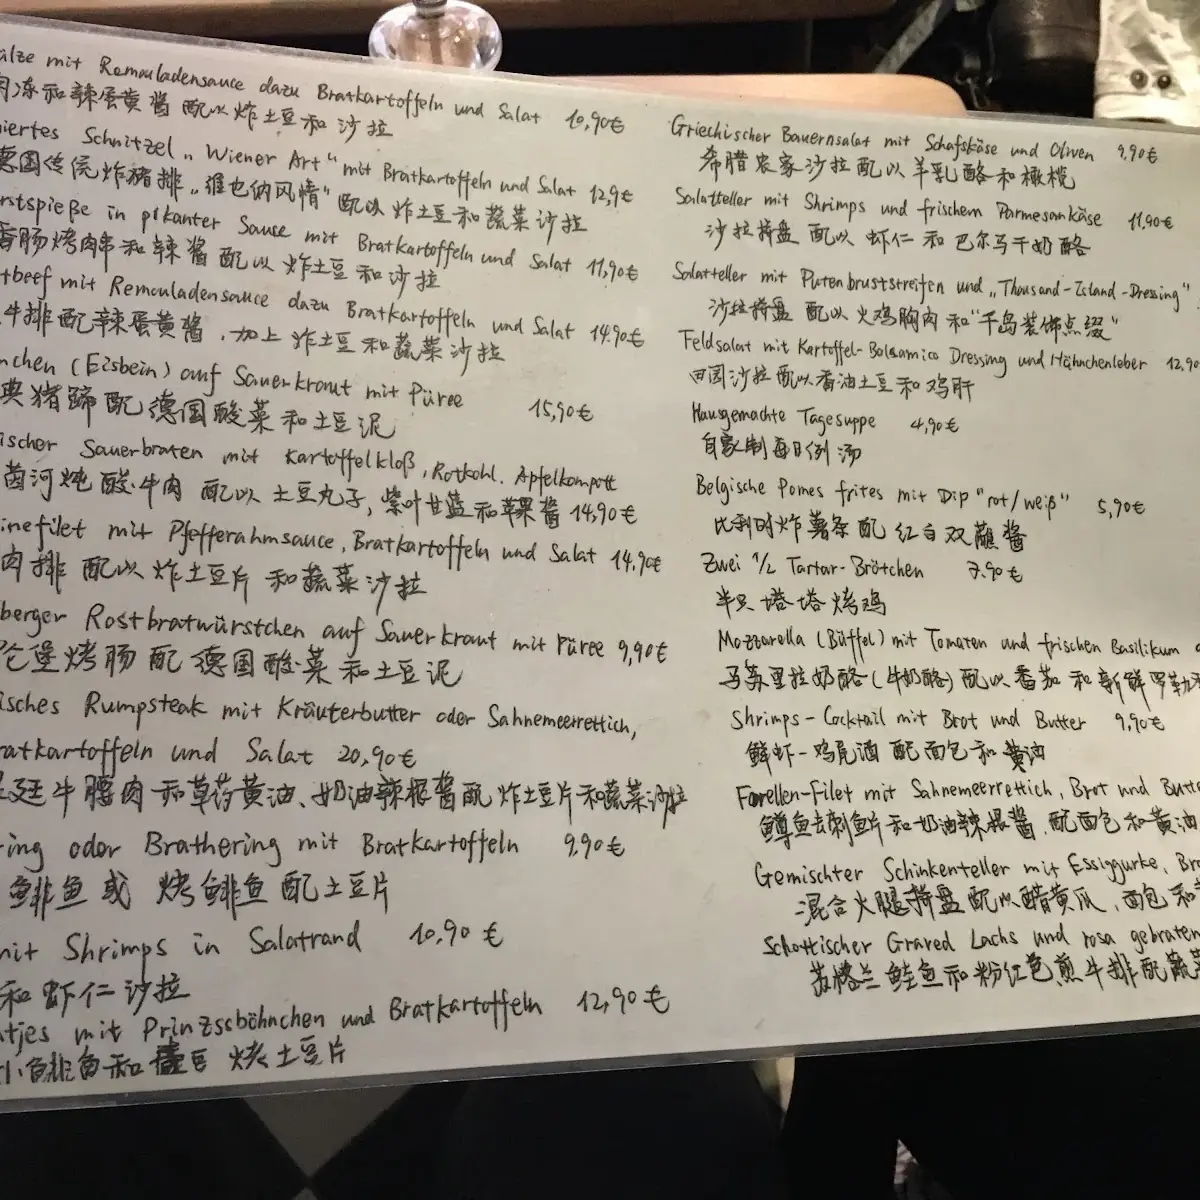 ülze mit Remouladensauce dazu Bratkartoffeln und Salat 10,90€
肉冻和辣蛋黄酱配以炸土豆和沙拉
iertes Schnitzel „Wiener Art" mit Bratkartoffeln und Salat 12,9€
德国传统炸猪排„维也纳风情"配以炸土豆和蔬菜沙拉
rstspieße in pikanter Sauce mit Bratkartoffeln und Salat 11,90€
香肠烤肉串和辣酱配以炸土豆和沙拉
tbeef mit Remouladensauce dazu Bratkartoffeln und Salat 14.90€
牛排配辣蛋黄酱,加上炸土豆和蔬菜沙拉
nchen (Eisbein) auf Sauerkraut mit Püree 15,90€
典猪蹄配德国酸菜和土豆泥
ischer Sauerbraten mit Kartoffelkloß, Rotkohl, Apfelkompott
茵河炖酸牛肉配以土豆丸子,紫叶甘蓝和苹果酱 14,90€
inefilet mit Pfefferahmsauce, Bratkartoffeln und Salat 14,90€
肉排配以炸土豆片和蔬菜沙拉
berger Rostbratwürstchen auf Sauerkraut mit Püree 9,90€
仑堡烤肠配德国酸菜和土豆泥
isches Rumpsteak mit Kräuterbutter oder Sahnemeerrettich,
ratkartoffeln und Salat 20,90€
廷牛腰肉和草药黄油、奶油辣根酱配炸土豆片和蔬菜沙拉
ring oder Brathering mit Bratkartoffeln 9,90€
鲱鱼或烤鲱鱼配土豆片
mit Shrimps in Salatrand 10,90€
和虾仁沙拉
tjes mit Prinzssböhnchen und Bratkartoffeln 12,90€
小鲱鱼和豆烤土豆片
Griechischer Bauernsalat mit Schafskäse und Oliven 9,90€
希腊农家沙拉配以羊乳酪和橄榄
Salatteller mit Shrimps und frischem Parmesankäse 11,90€
沙拉拼盘配以虾仁和巴尔马干奶酪
Salatteller mit Putenbruststreifen und „Thousand-Island-Dressing"
沙拉拼盘配以火鸡胸肉和"千岛装饰点缀"
Feldsalat mit Kartoffel-Balsamico Dressing und Hähnchenleber 12,90
田园沙拉配以香油土豆和鸡肝
Hausgemachte Tagesuppe 4,90€
自家制每日例汤
Belgische Pomes frites mit Dip "rot/weiß" 5,90€
比利时炸薯条配红白双蘸酱
Zwei 1/2 Tartar-Brötchen 7.90€
半只塔塔烤鸡
Mozzarella (Büffel) mit Tomaten und frischen Basilikum
马苏里拉奶酪(牛奶酪)配以番茄和新鲜罗勒
Shrimps-Cocktail mit Brot und Butter 9,90€
鲜虾-鸡尾酒配面包和黄油
Forellen-Filet mit Sahnemeerrettich, Brot und Butte
鳟鱼去刺鱼片和奶油辣根酱,配面包和黄油
Gemischter Schinkenteller mit Essiggurke, Bro
混合火腿拼盘配以醋黄瓜、面包和
Schottischer Graved Lachs und rosa gebraten
苏格兰鲑鱼和粉红色煎牛排配蔬菜